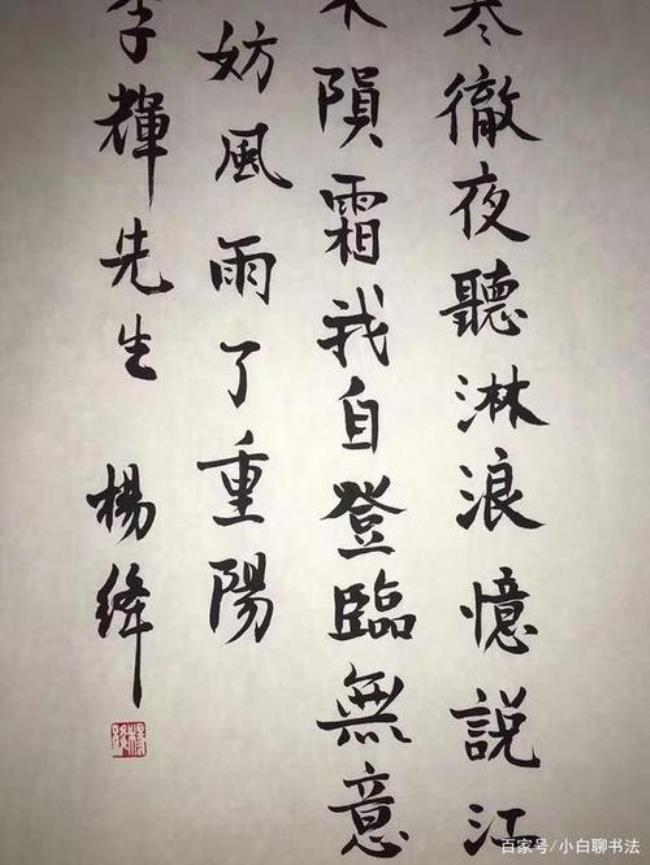 徹夜聽淋浪憶說江
隕霜我自登臨無意
妨風雨了重陽
李輝先生 楊絳
百家号/小白聊书法